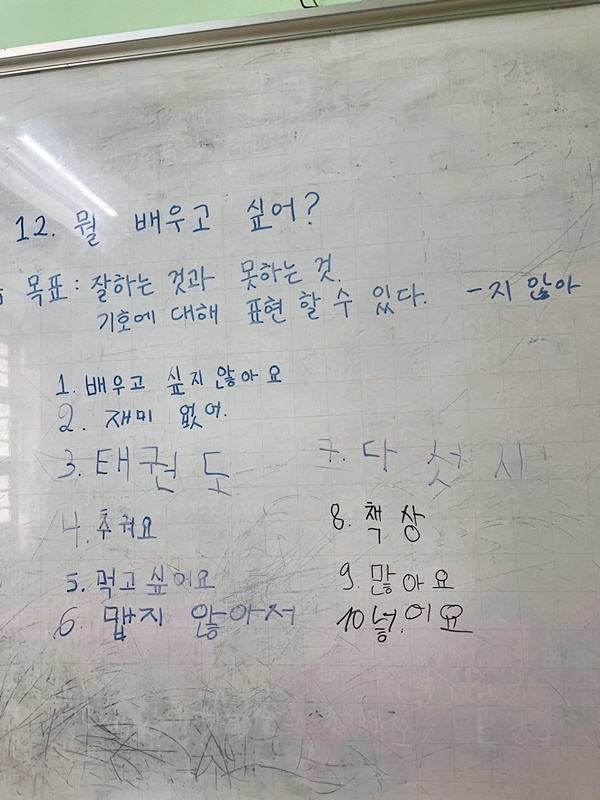 12. 뭘 배우고 싶어?
목표 : 잘하는 것과 못하는 것.
기호에 대해 표현 할 수 있다. -지 않아
1. 배우고 싶지 않아요
2. 재미 없어.
3. 태권도
4. 추워요
5. 먹고 싶어요
6. 맵지 않아서
7. 다섯 시
8. 책상
9. 많아요
10 넣어요